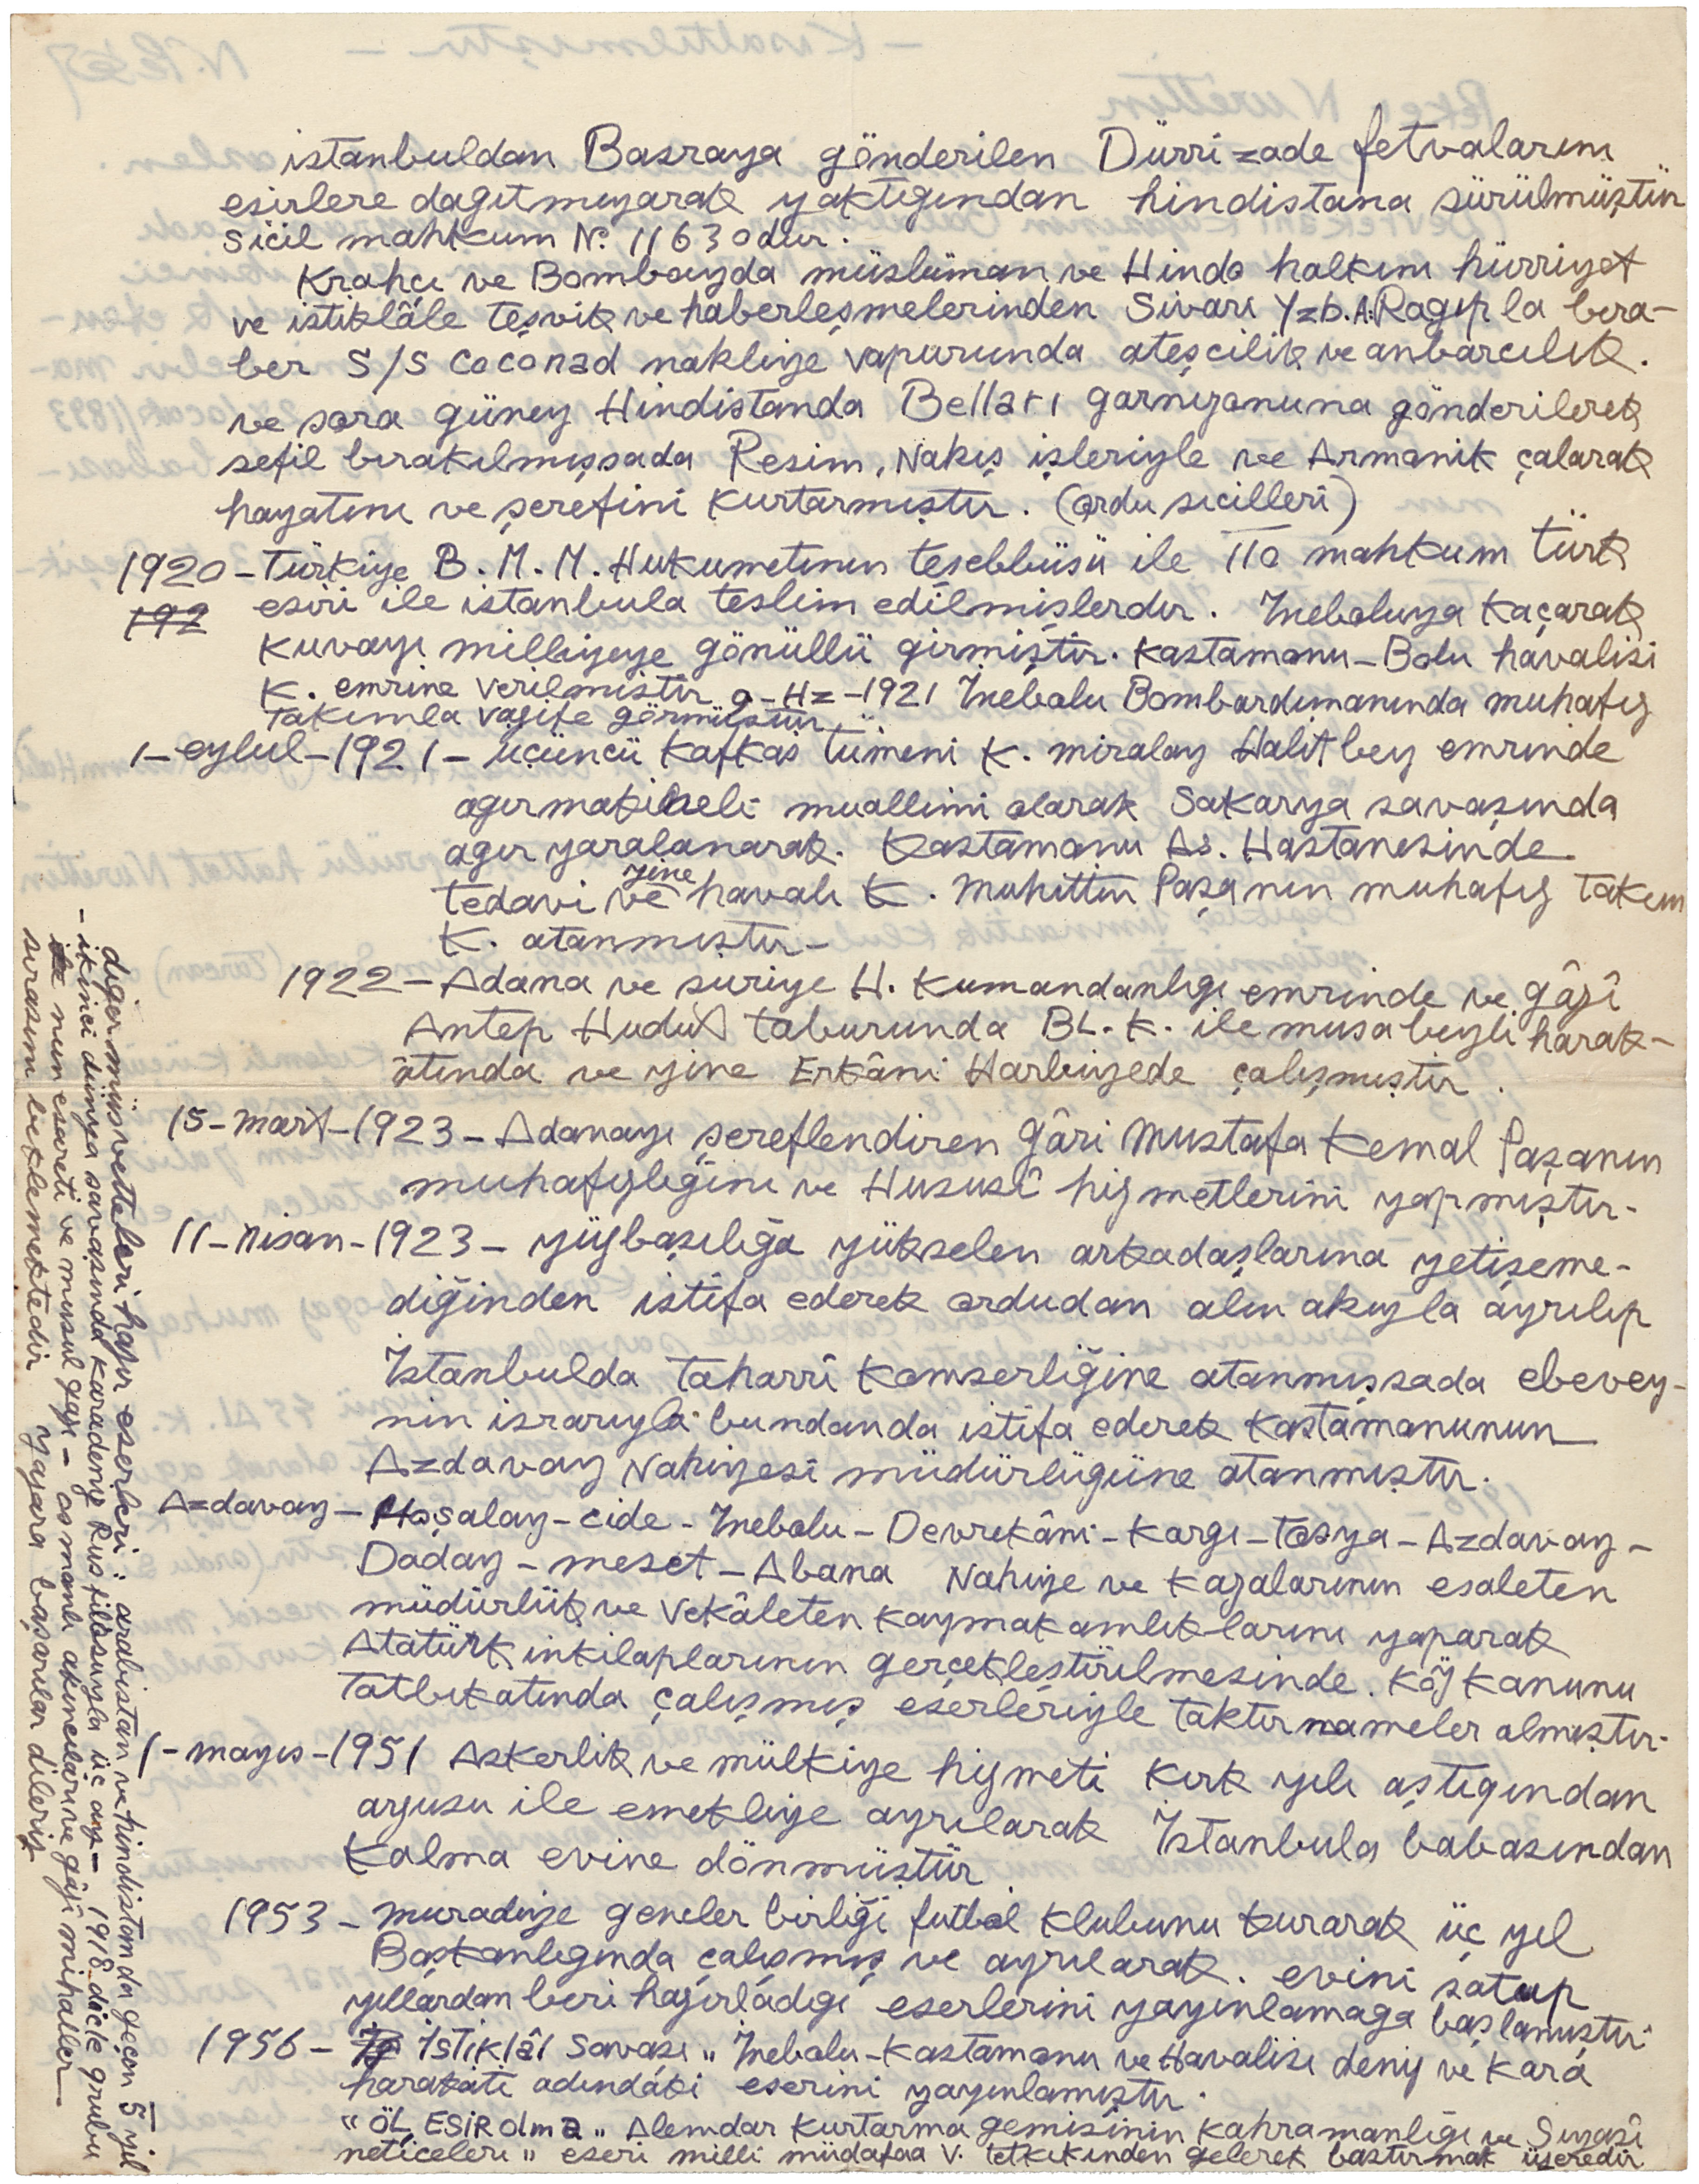 istanbuldan Basraya gönderilen Dürrizade fetvalarını
esirlere dagıtmıyarak yaktıgından hindistana sürülmüştür
sicil mahkum No. 11630dur.
Krahçı ve Bombayda müslüman ve Hindo halkını hürriyet
ve istiklâle teşvik ve haberleşmelerinden Sivarı Yzb. A. Ragıpla bera-
ber S/S Coconad nakliye vapurunda ateşcilik ve anbarcılık.
ve sora güney Hindistanda Belları garnizonuna gönderilerek
sefil bırakılmışsada Resim, Nakış işleriyle ve Armonik çalarak
hayatını ve şerefini kurtarmıştır. (ordu sicilleri)
1920 - Türkiye B.M.M. Hukumetının teşebbüsü ile 110 mahkum türk
192 esiri ile istanbula teslim edilmişlerdır. Ineboluya kaçarak
kuvayı milliyeye gönüllü girmiştir. Kastamonu - Bolu havalisi
K. emrine verilmiştir 9-Hz-1921 İnebolu Bombardımanında muhafız
takımla vazife görmüştür.
1-eylul-1921 - üçüncü Kafkas tümeni K. miralay Halit bey emrinde
agırmakineli muallimi olarak Sakarya savaşında
agır yaralanarak. Kastamonu As. Hastanesinde
tedavi ve yine havalı K. Muhittin Paşanın muhafız takım
K. atanmıştır-
1922 - Adana ve suriye H. Kumandanlıgı emrinde ve gâzî
Antep Hudut taburunda BL. K. ile musabeyli harak-
âtında ve yine Erkâni Harbiyede çalışmıştır.
15-Mart-1923 - Adanayı şereflendiren gâzi Mustafa Kemal Paşanın
muhafızlığını ve Hususî hizmetlerini yapmıştır-
11-Nisan-1923 - yüzbaşılığa yükselen arkadaşlarına yetişeme-
diğinden istifa ederek ordudan alın akıyla ayrılıp
İstanbulda taharrî komserliğine atanmışsada ebevey-
nin israrıyla bundanda istifa ederek Kastamonunun
Azdavay Nahiyesi müdürlügüne atanmıştır.
Azdavay - Hoşalay - cide - Inebolu - Devrekâni - Kargı - Tosya - Azdavay -
Daday - meset - Abana Nahiye ve kazalarının esaleten
müdürlük ve vekâleten kaymakamlıklarını yaparak
Atatürk inkilaplarının gerçekleştirilmesinde. Köy kanunu
tatbıkatında çalışmış eserleriyle taktırnameler almıştır-
1-mayıs-1951 Askerlik ve mülkiye hizmeti kırk yılı aştıgından
arzusu ile emekliye ayrılarak İstanbula babasından
Kalma evine dönmüştür
1953 - muradiye gencler birliği futbol klubunu kurarak üç yıl
Başkanlıgında çalışmış ve ayrılarak. evini satup
yıllardan beri hazırladıgı eserlerini yayınlamaga başlamıştır.
1956 - İstiklâl Savası „ Inebolu-Kastamonu ve Havalisi deniz ve kara
harakâti adındaki eserini yayınlamıştır.
“ ÖL ESİR olma „ Alemdar Kurtarma gemisinin kahramanlığı ve Siyasî
neticeleri „ eseri milli müdafaa V. tetkikinden gelerek bastırmak üzeredir
diger müsvetteleri hazır eserleri: arabistan ve hindistanda geçen 5 yıl
- ikinci dünya savaşında karadeniz Rus filosuyla üç ay - 1918 dicle grubu
nun esareti ve musul gazı - osmanlı akıncıları ve gâzî mihaller -
sırasını beklemektedir yazara başarılar dileriz